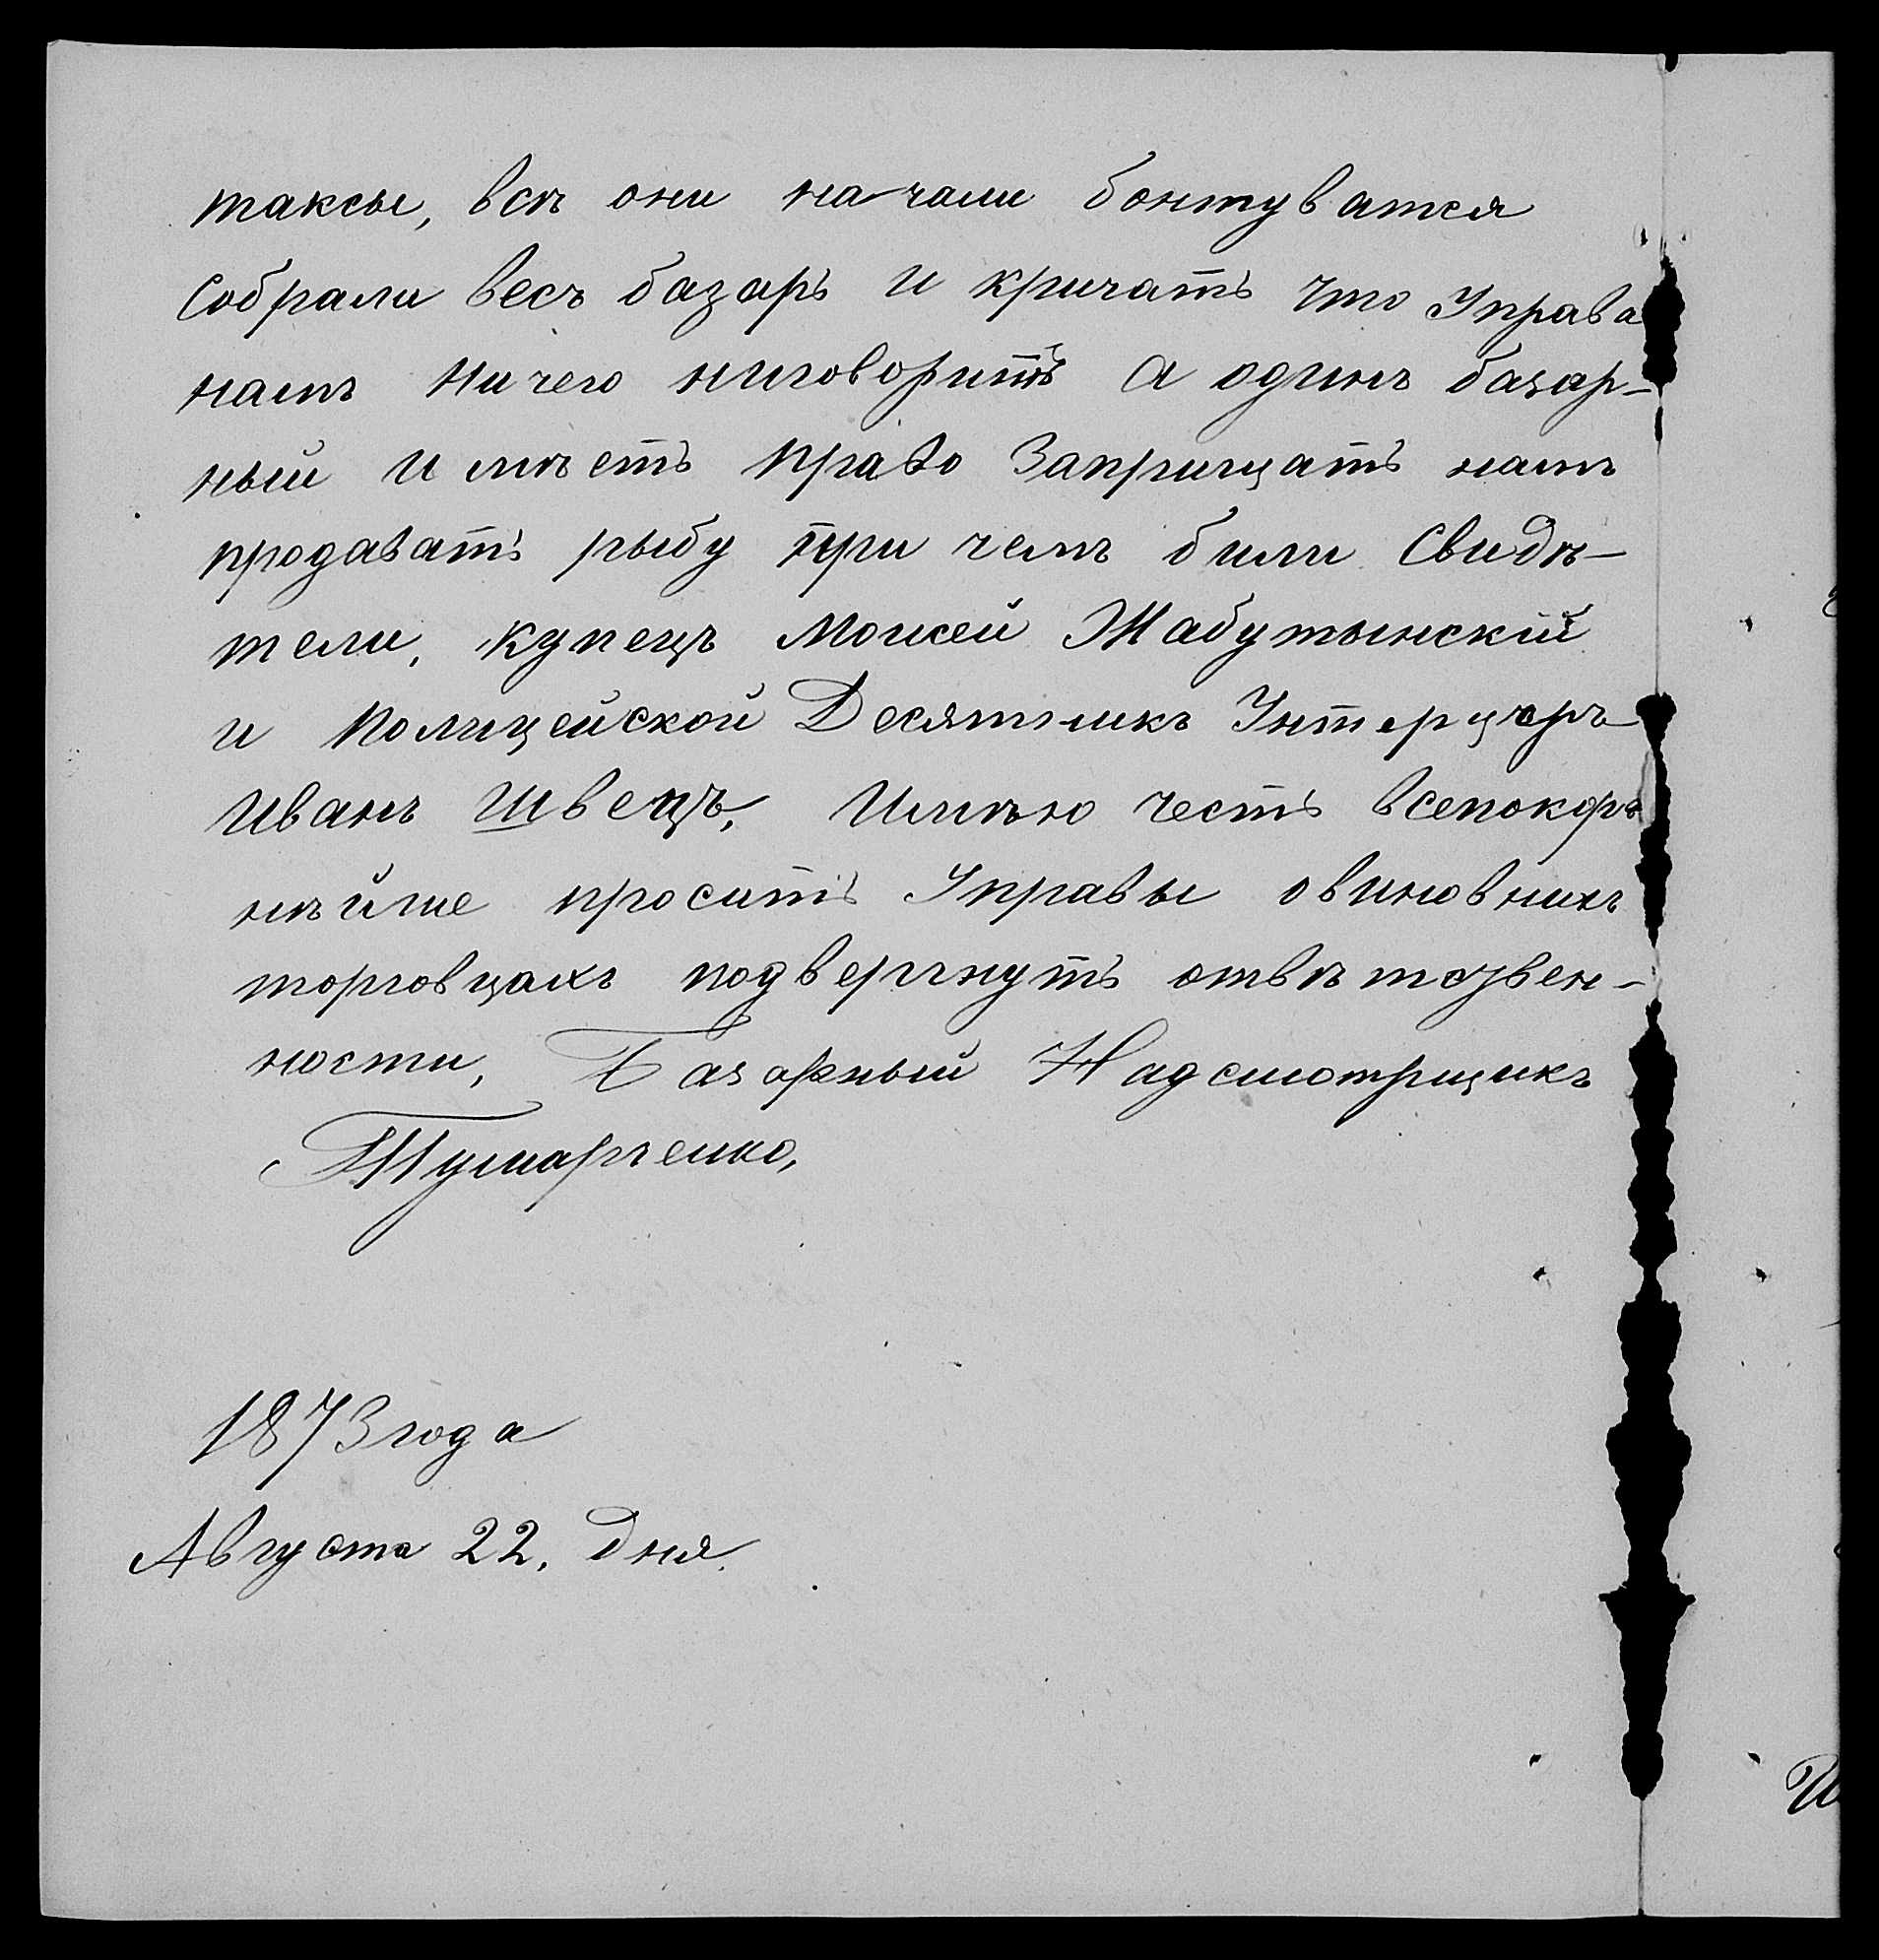 таксы, всѣ они начали бонтуватся
Собрали весъ базаръ и кричатъ что Управа
намъ ничего ниговоритъ а одинъ базар-
ный имѣетъ право Заприщать намъ
продавать рыбу при чемъ били Свидѣ-
тели, купецъ Моисей Жабутынскій
и Полицейской Десятникъ Унтерцеръ
Иванъ Швецъ, Имѣю честь всепокор
нѣйше просить Управы овиновнихъ
торговцахъ подвергнуть отвѣтсвен-
ности, Базарный Надсмотрщикъ
1873 года
Августа 22, Дня.